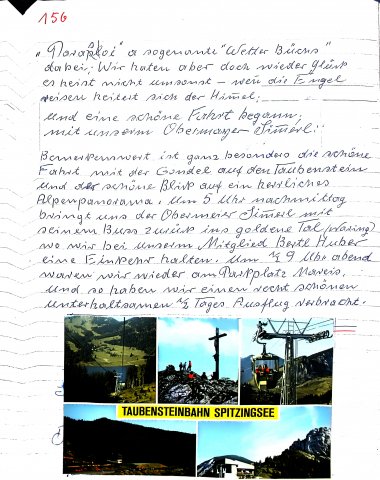 156
"Paraploi" a sogenante "Wetter Büchs"
dabei; Wir haten aber doch wieder Glück
es heist nicht umsonst – wen die Engel
reisen heitert sich der Himel;
und eine schöne Fahrt begann;
mit unserm Obermayer Simerl::
Bemerkenswert ist ganz besonders die schöne
Fahrt mit der Gondel auf den Taubenstein
und der schöne Blick auf ein herrliches
Alpenpanorama. Um 5 Uhr nachmittag
bringt uns der Obermeier Simerl mit
seinem Buss zurück ins goldene Tal
wo wir bei unserm Mitglied Bertl Huber
eine Einkehr halten. Um ½ 9 Uhr abend
waren wir wieder am Parkplatz
und so haben wir einen recht schönen
unterhaltsamen ½ Tages Ausflug verbracht.
TAUBENSTEINBAHN SPITZINGSEE